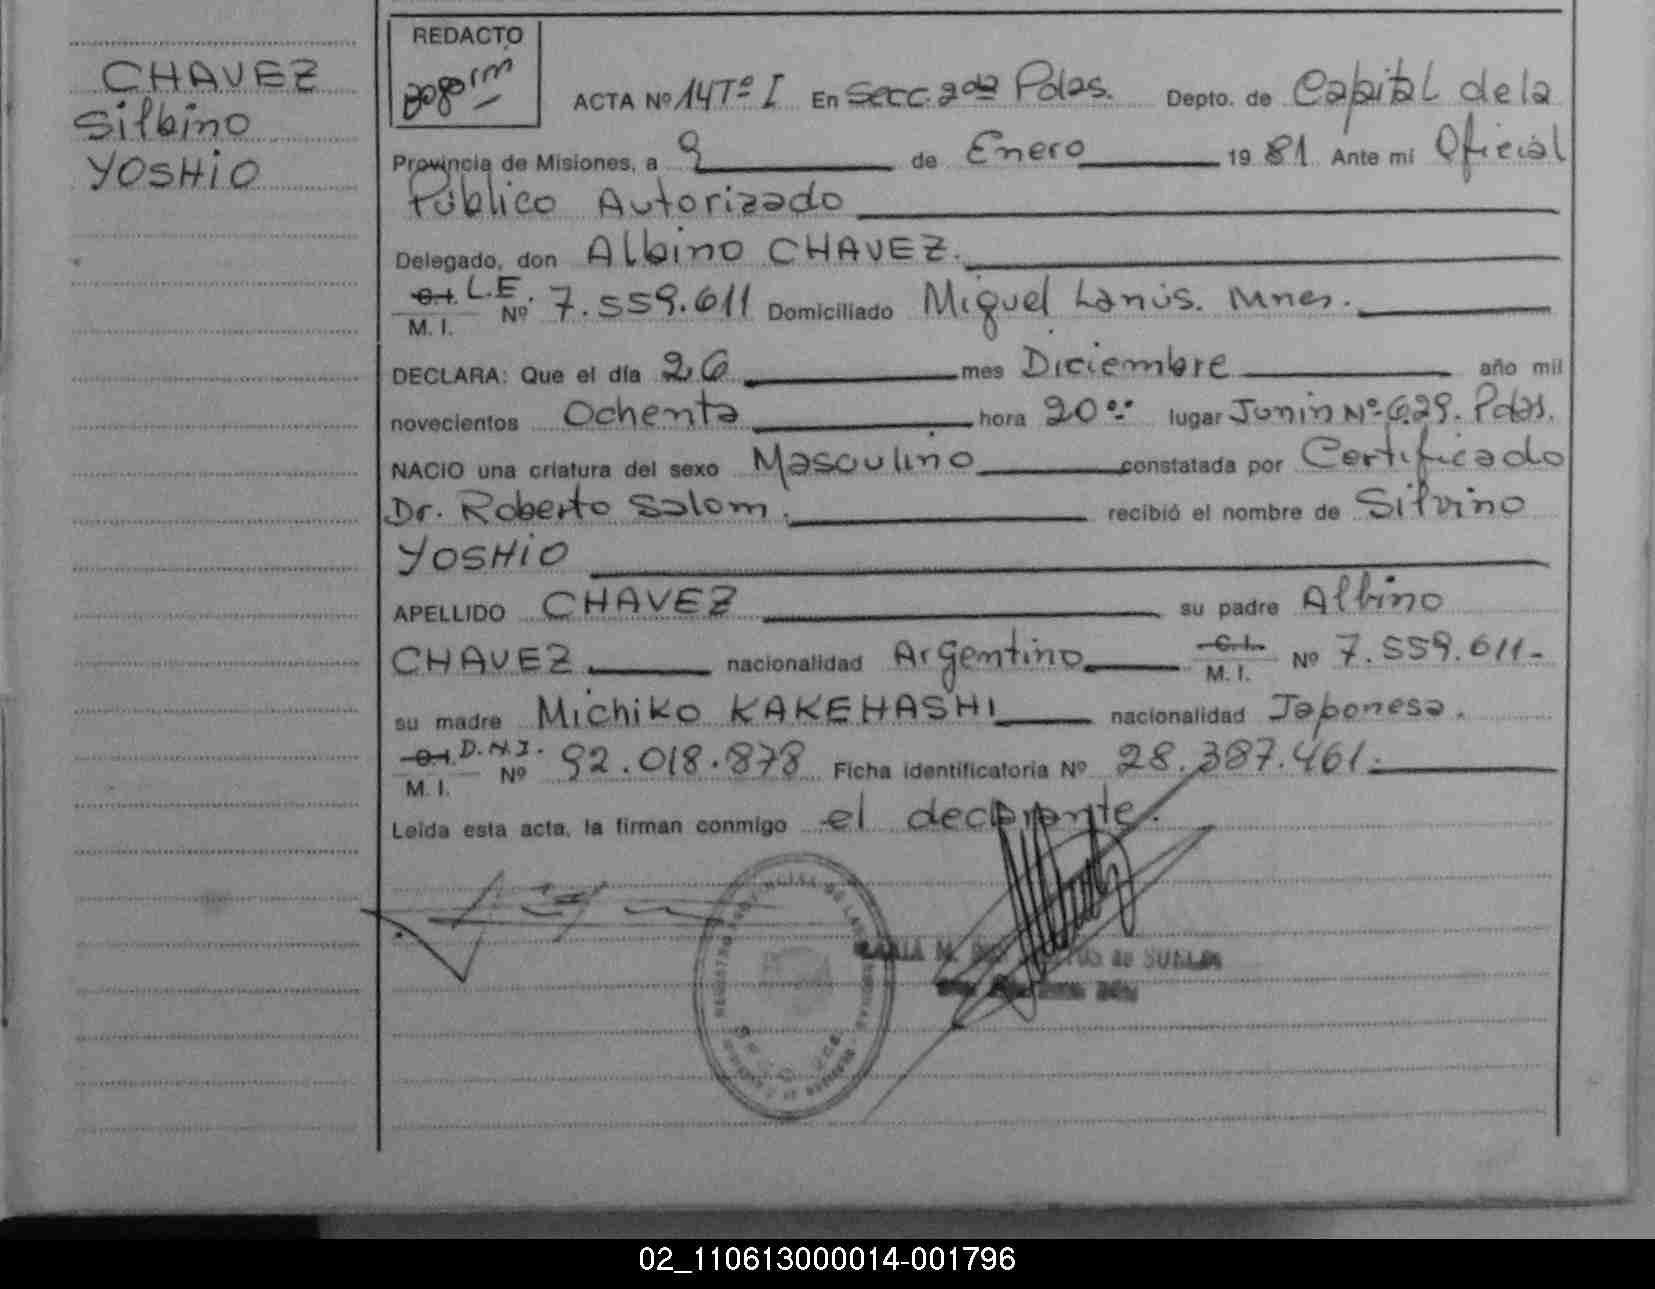 CHAVEZ
Silbino
YOSHIO
REDACTO
ACTA Nº 14 Tº I En Secc. 2da Pdas. Depto. de Capital de la
Provincia de Misiones, a 9 de Enero 1981 Ante mi Oficial
Público Autorizado
Delegado, don Albino CHAVEZ.
C.I. L.E.
M. I. Nº 7.559.611 Domiciliado Miguel Lanús. Mnes.
DECLARA: Que el día 26 mes Diciembre año mil
novecientos Ochenta hora 20:00 lugar Junín Nº 629. Pdas.
NACIO una criatura del sexo Masculino constatada por Certificado
Dr. Roberto Salom. recibió el nombre de Silvino
YOSHIO
APELLIDO CHAVEZ su padre Albino
CHAVEZ nacionalidad Argentino C.I.
M. I. Nº 7.559.611.-
su madre Michiko KAKEHASHI nacionalidad Japonesa.
C.I. D.N.I.
M. I. Nº 92.018.878 Ficha identificatoria Nº 28.387.461.-
Leída esta acta, la firman conmigo el declarante.
02_110613000014-001796